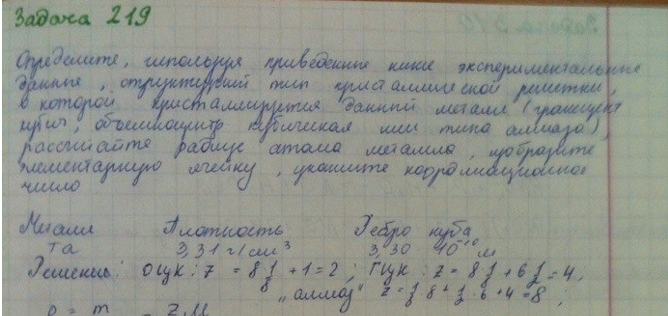 Задача 219
Определите, используя приведенные ниже экспериментальные
данные, структурный тип кристаллической решетки,
в которой кристаллизуется данный металл (гранецент
кубич, объемноцентр кубическая или типа алмаза),
рассчитайте радиус атома металла, изобразите
элементарную ячейку, укажите координационное
число
Металл Плотность Ребро куба
Ta 3,31 г/см³ 3,30 10⁻¹⁰ м
Решение: ОЦК: Z = 8 1/8 + 1 = 2; ГЦК: Z = 8 1/8 + 6 1/2 = 4,
"алмаз" Z = 1/8 · 8 + 1/2 · 6 + 4 = 8,
ρ = m = Z M